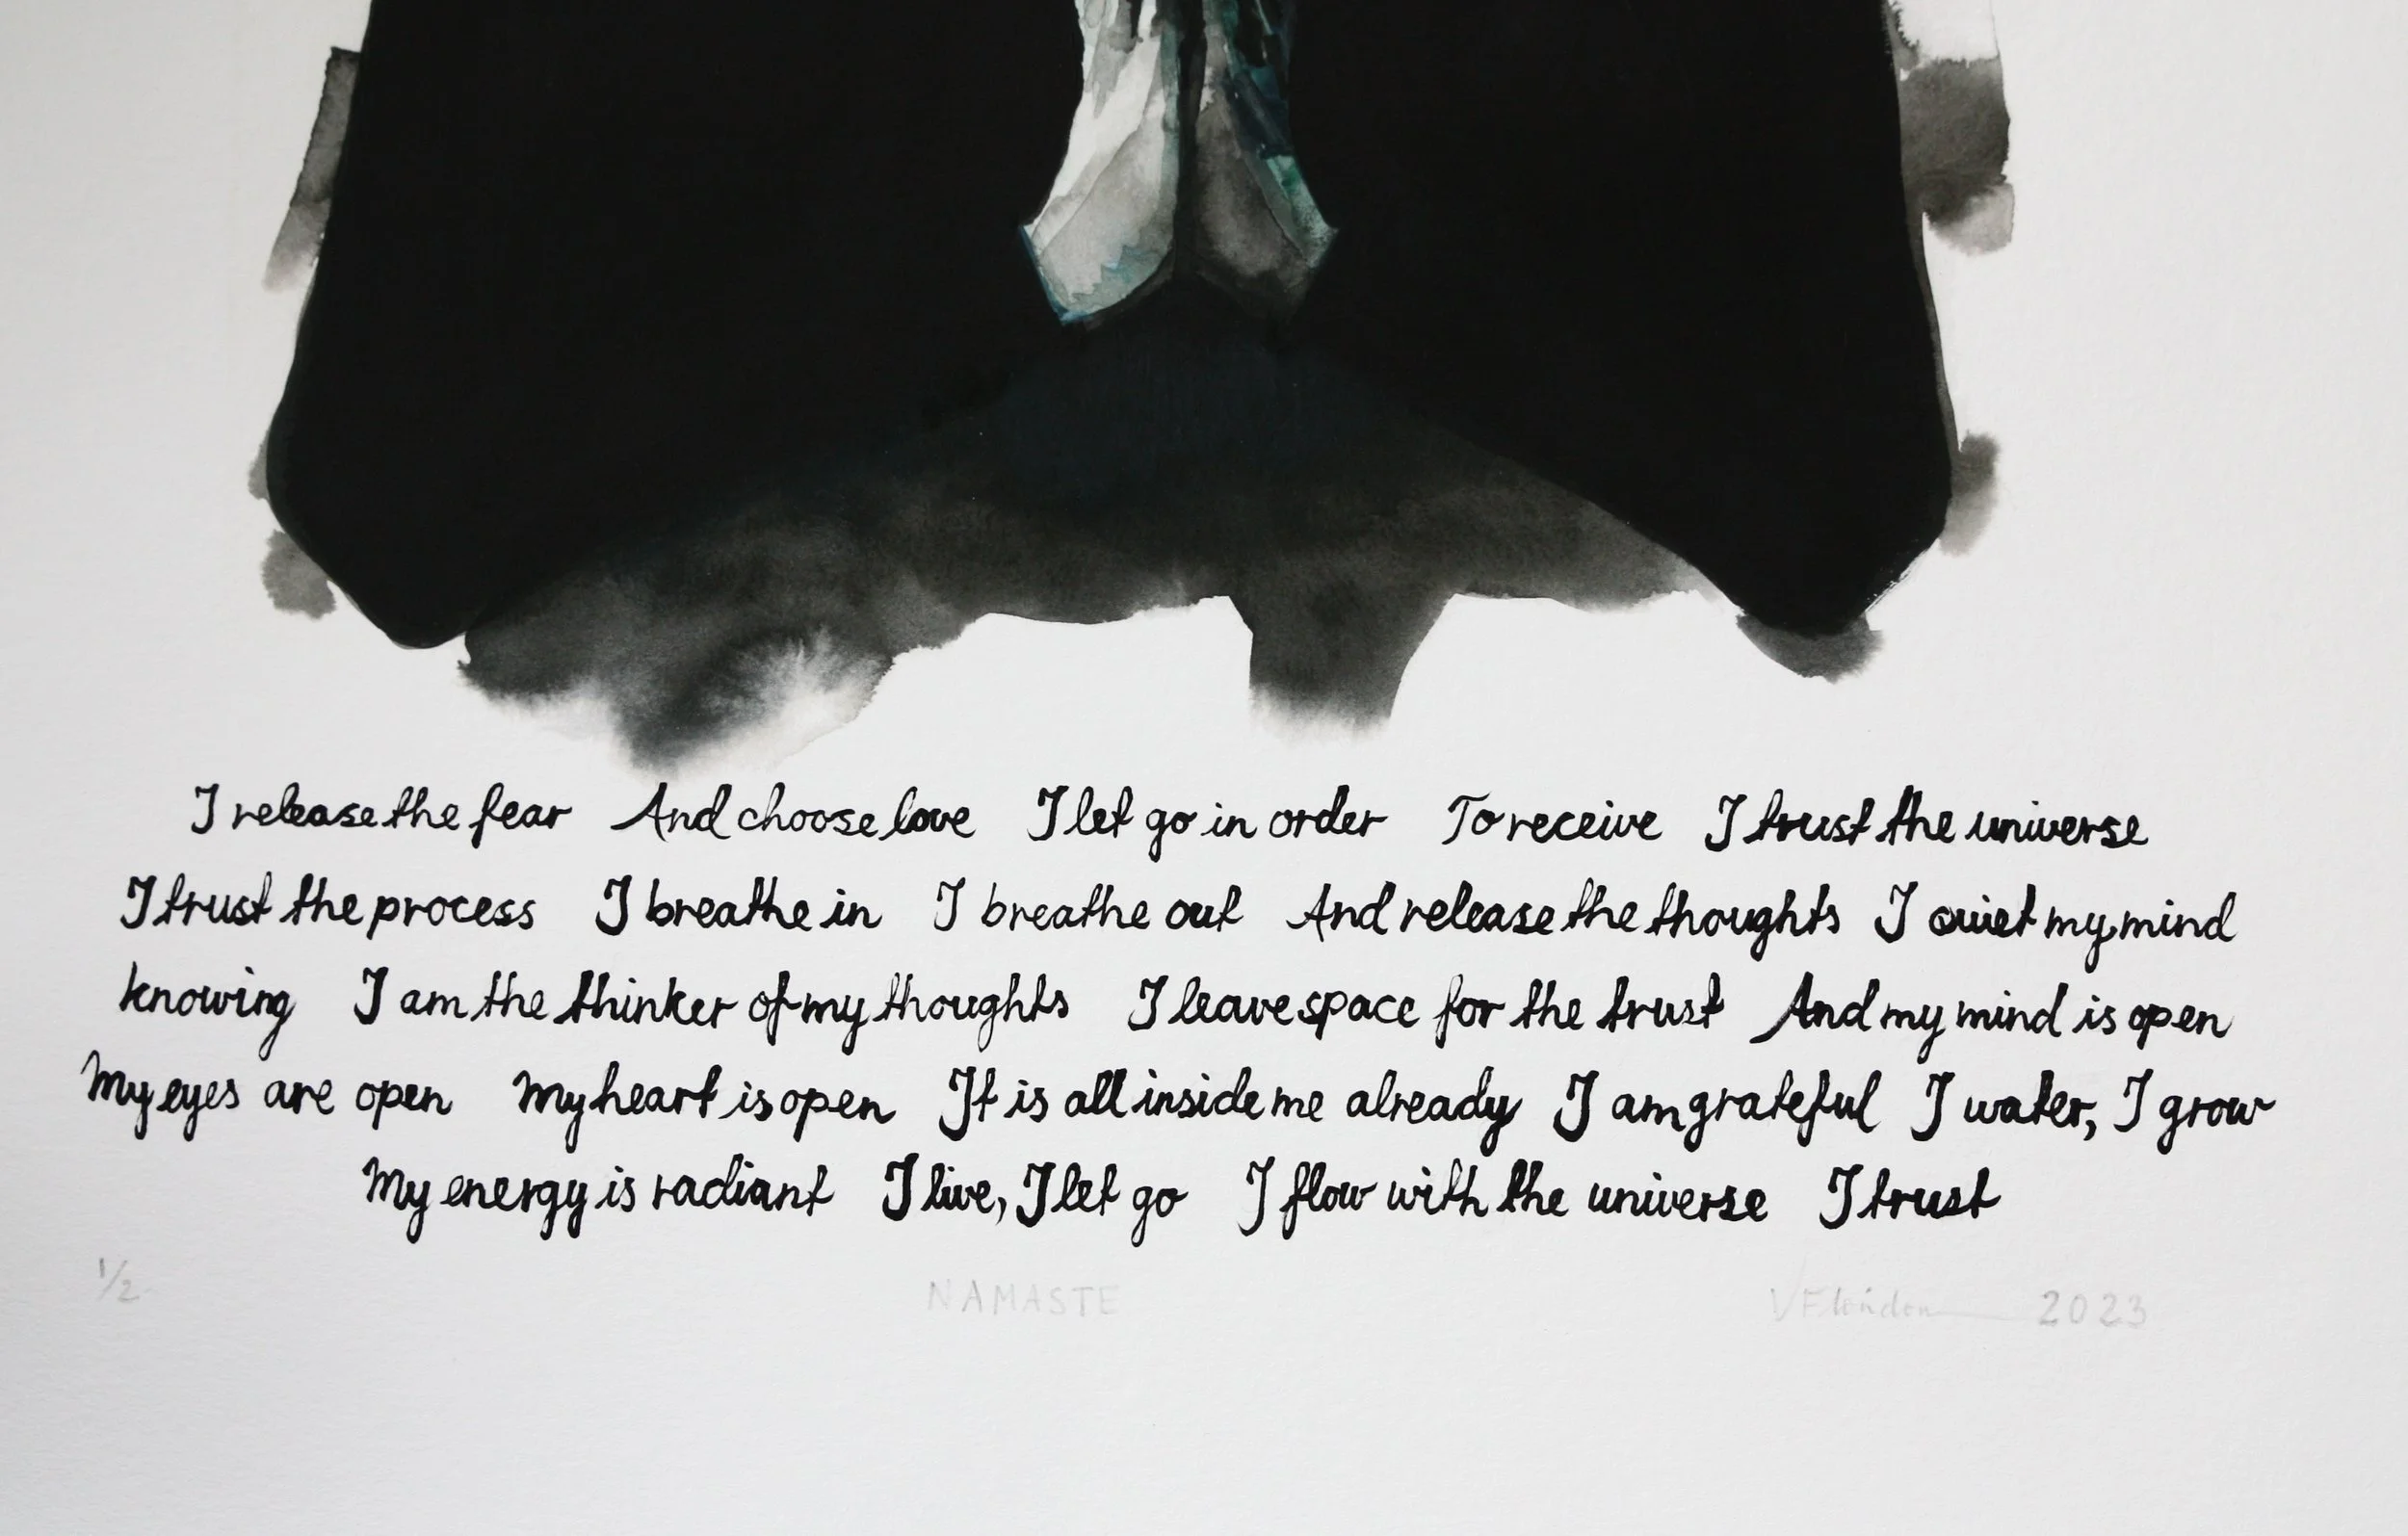 I release the fear And choose love I let go in order To receive I trust the universe
I trust the process I breathe in I breathe out And release the thoughts I quiet my mind
knowing I am the thinker of my thoughts I leave space for the trust And my mind is open
My eyes are open My heart is open It is all inside me already I am grateful I water, I grow
My energy is radiant I live, I let go I flow with the universe I trust
1/2 NAMASTE 2023